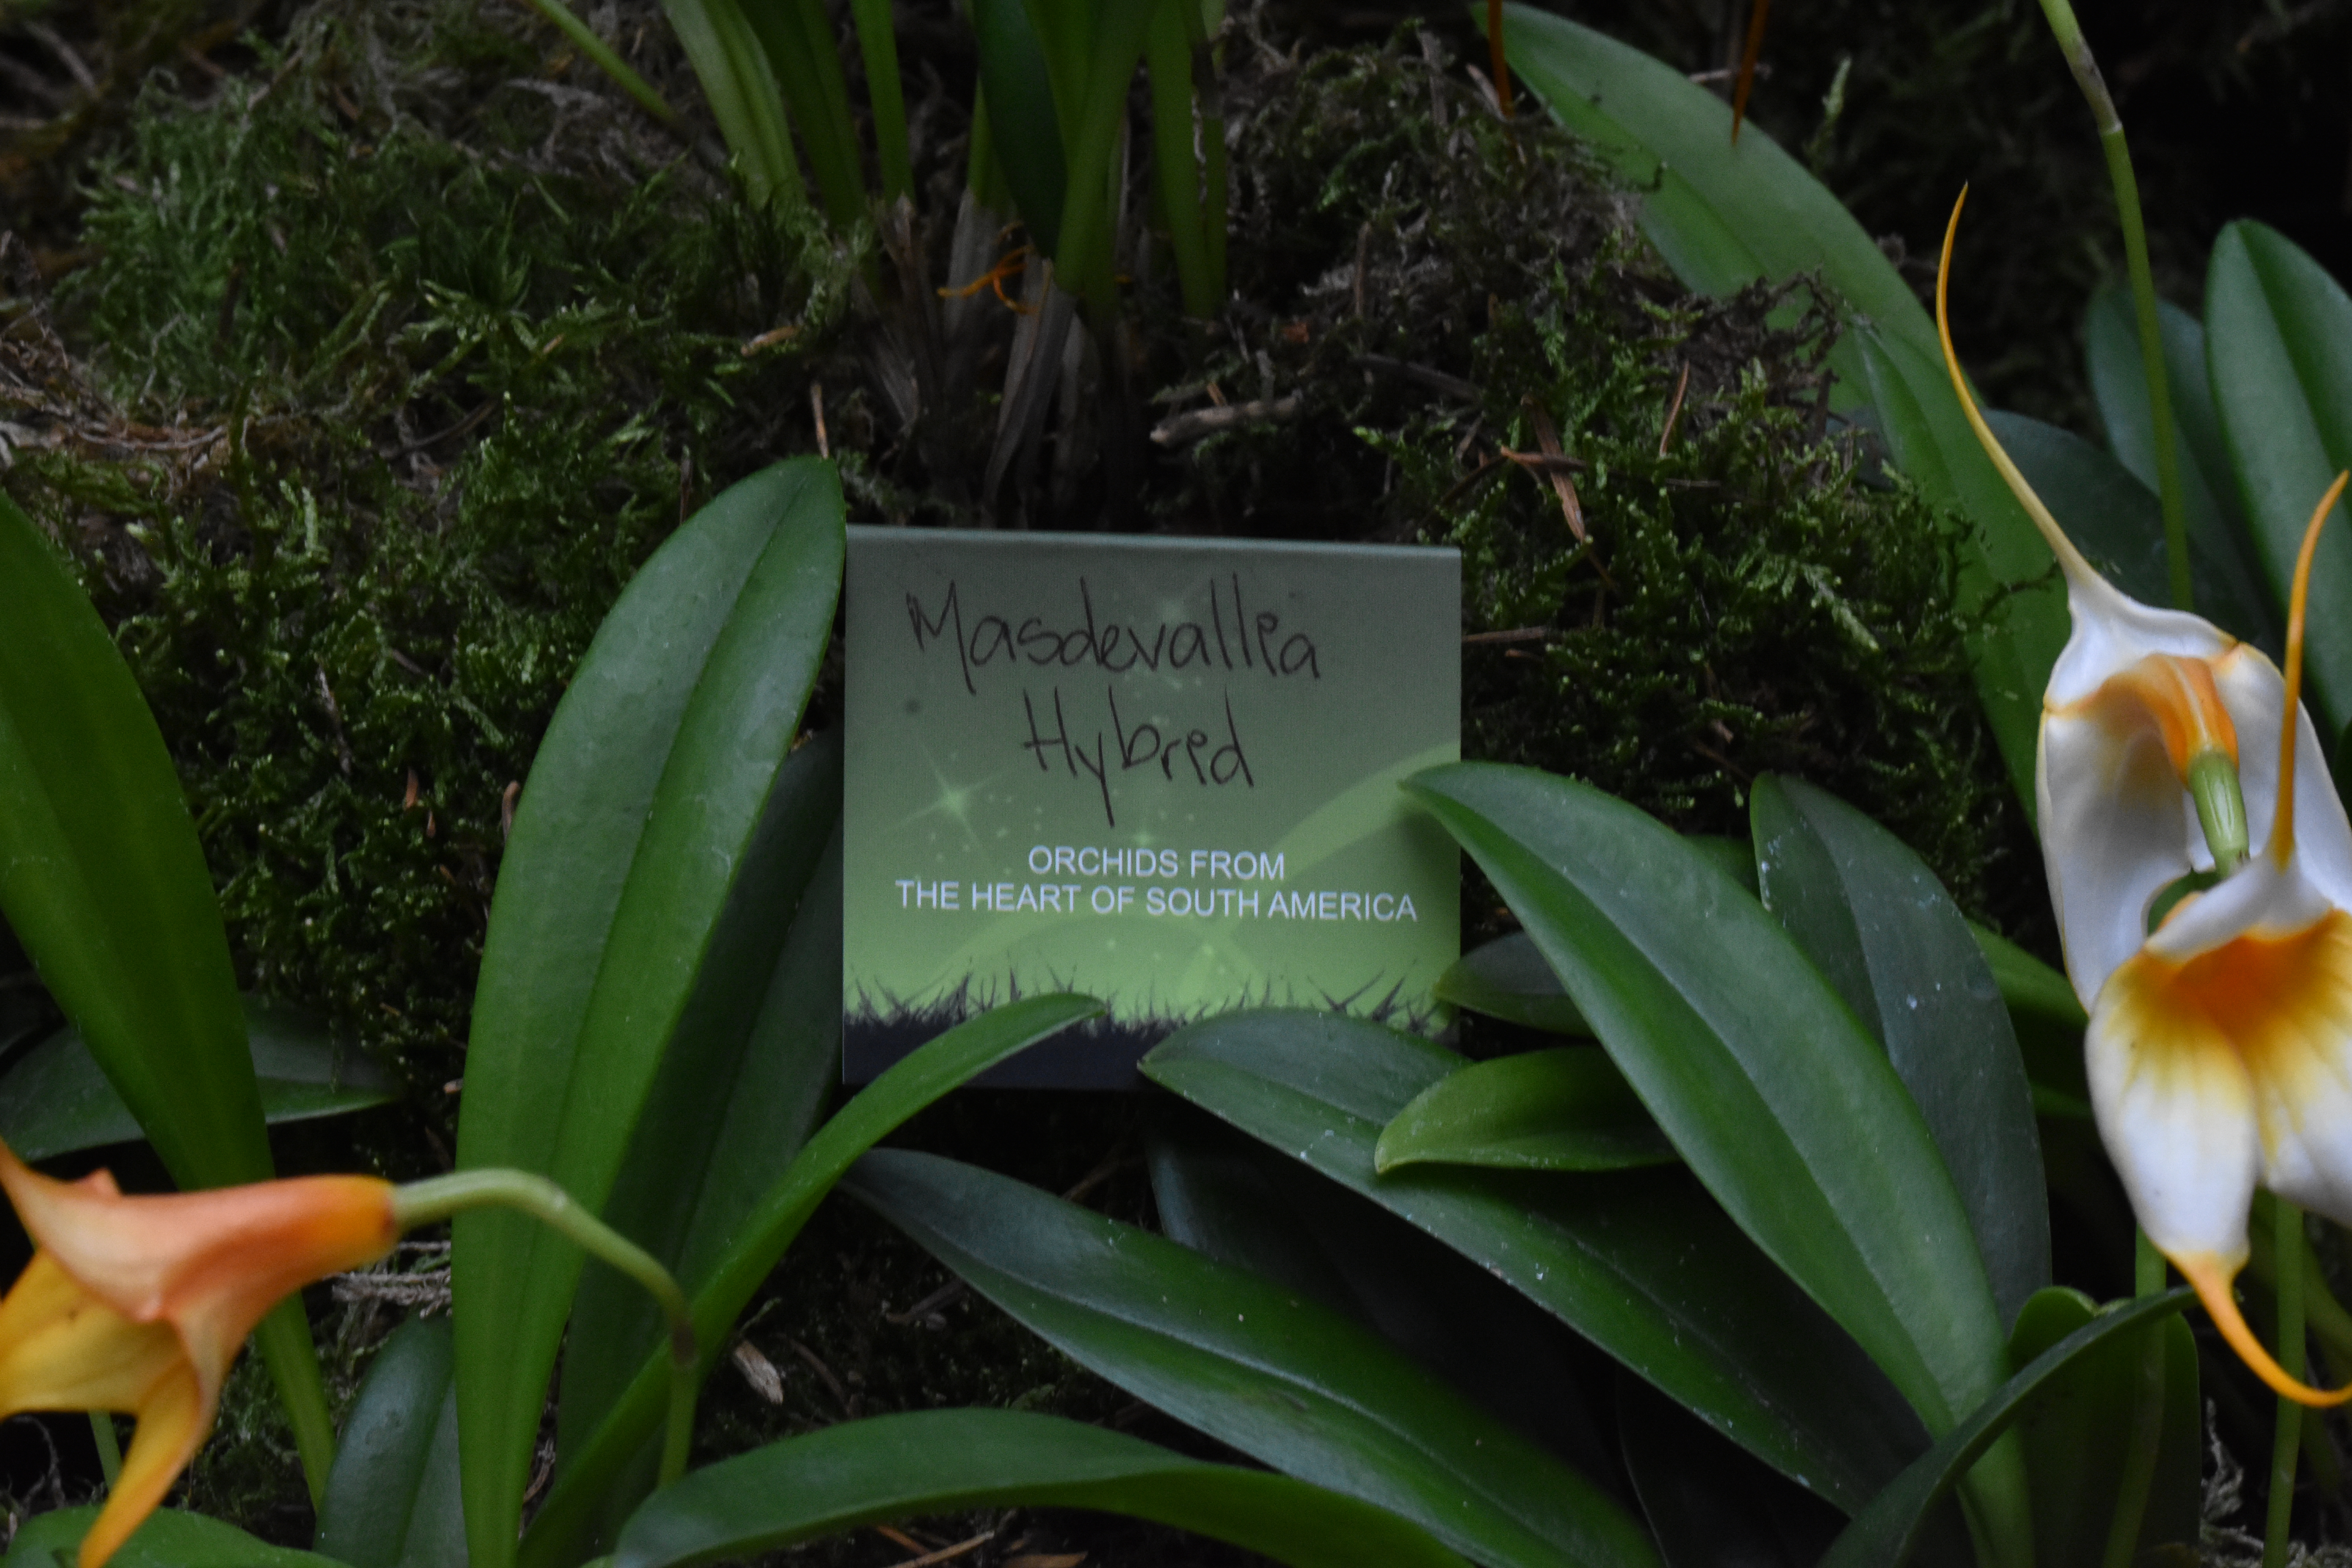 Masdevallia
Hybrid
ORCHIDS FROM
THE HEART OF SOUTH AMERICA